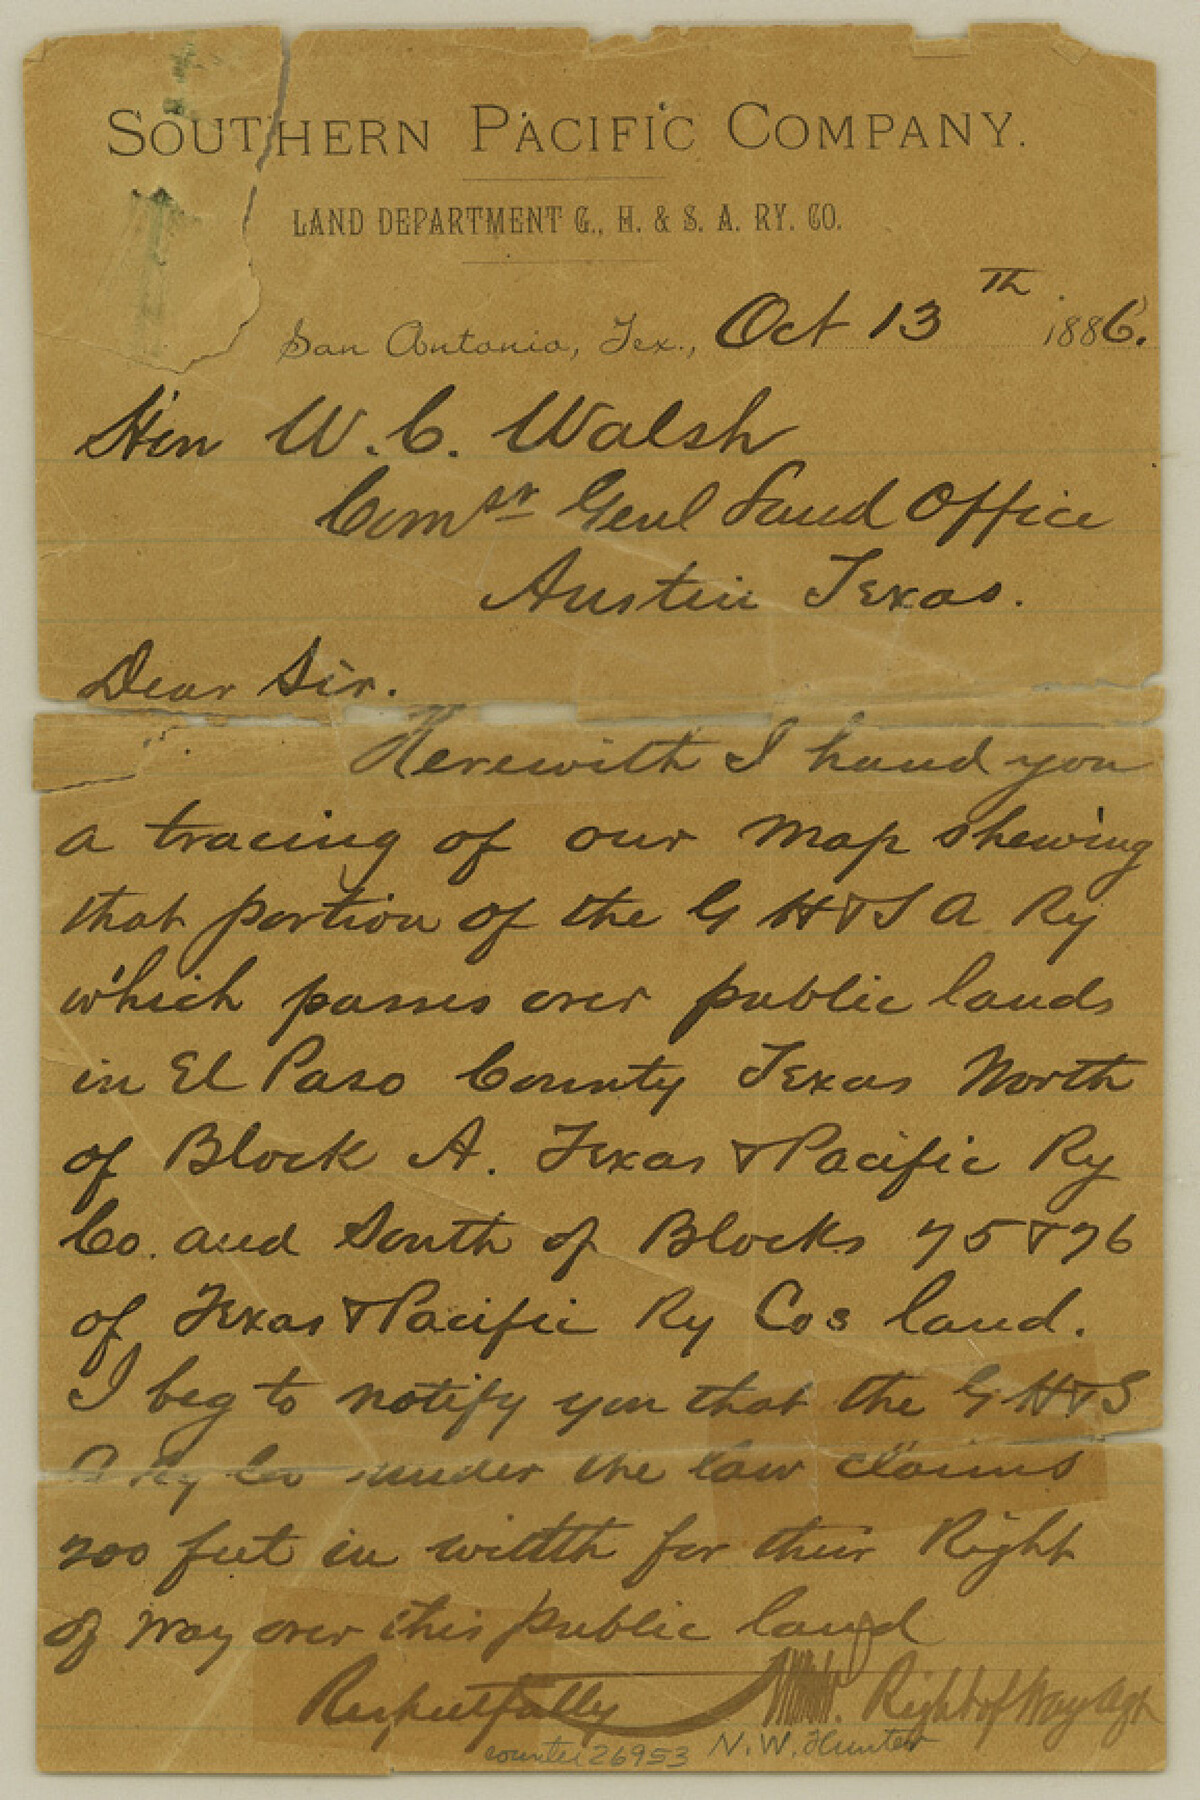 SOUTHERN PACIFIC COMPANY.
LAND DEPARTMENT G., H. & S. A. RY. CO.
San Antonio, Tex., Oct 13th 1886.
Hon W. C. Walsh
Comsr Genl Land Office
Austin Texas.
Dear Sir.
Herewith I hand you
a tracing of our map shewing
that portion of the G H & S A Ry
which passes over public lands
in El Paso County Texas North
of Block A. Texas & Pacific Ry
Co. and South of Blocks 75 & 76
of Texas & Pacific Ry Cos land.
I beg to notify you that the G H & S
A Ry Co under the law claims
200 feet in width for their Right
of way over this public land
Respectfully Right of Way Agt
counter 26953 N. W. Hunter